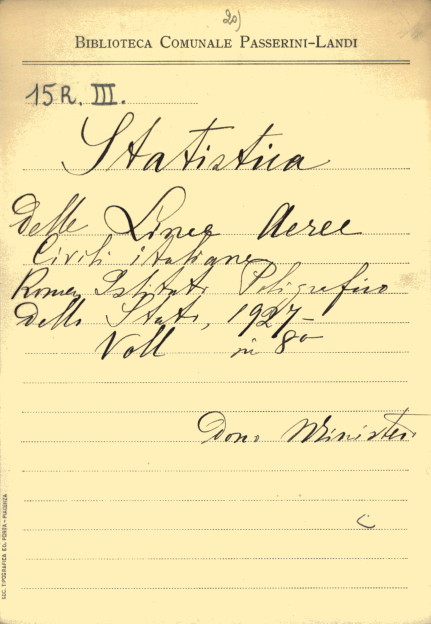 20)
BIBLIOTECA COMUNALE PASSERINI-LANDI
15 R. III.
Statistica
delle Linee Aeree
Civili italiane
Roma, Istituto Poligrafico
dello Stato, 1927-
Voll in 8º
Dono Ministero
SOC. TIPOGRAFICA ED. PORTA - PIACENZA